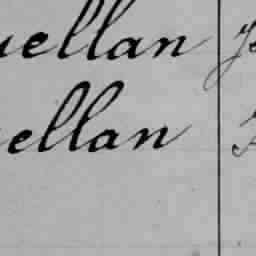 uellan
ellan